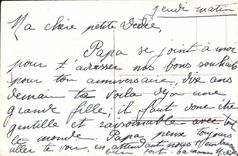 Jeudi matin
Ma chère petite Dédée,
Papa se joint à moi
pour t'adresser nos bons souhaits
pour ton anniversaire, dix ans
demain te voilà déjà une
grande fille, il faut donc être
gentille et raisonnable avec tout
le monde. Papa pense toujours
aller te voir, en attendant nous t'embrassons
bien fort